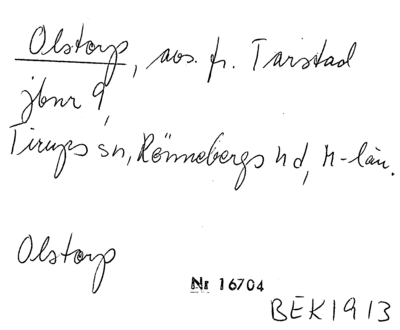 Olstorp, avs. fr. Tarstad
jbnr 9,
Tirups sn, Rönnebergs hd, M-län.
Olstorp
Nr 16704
BEK1913